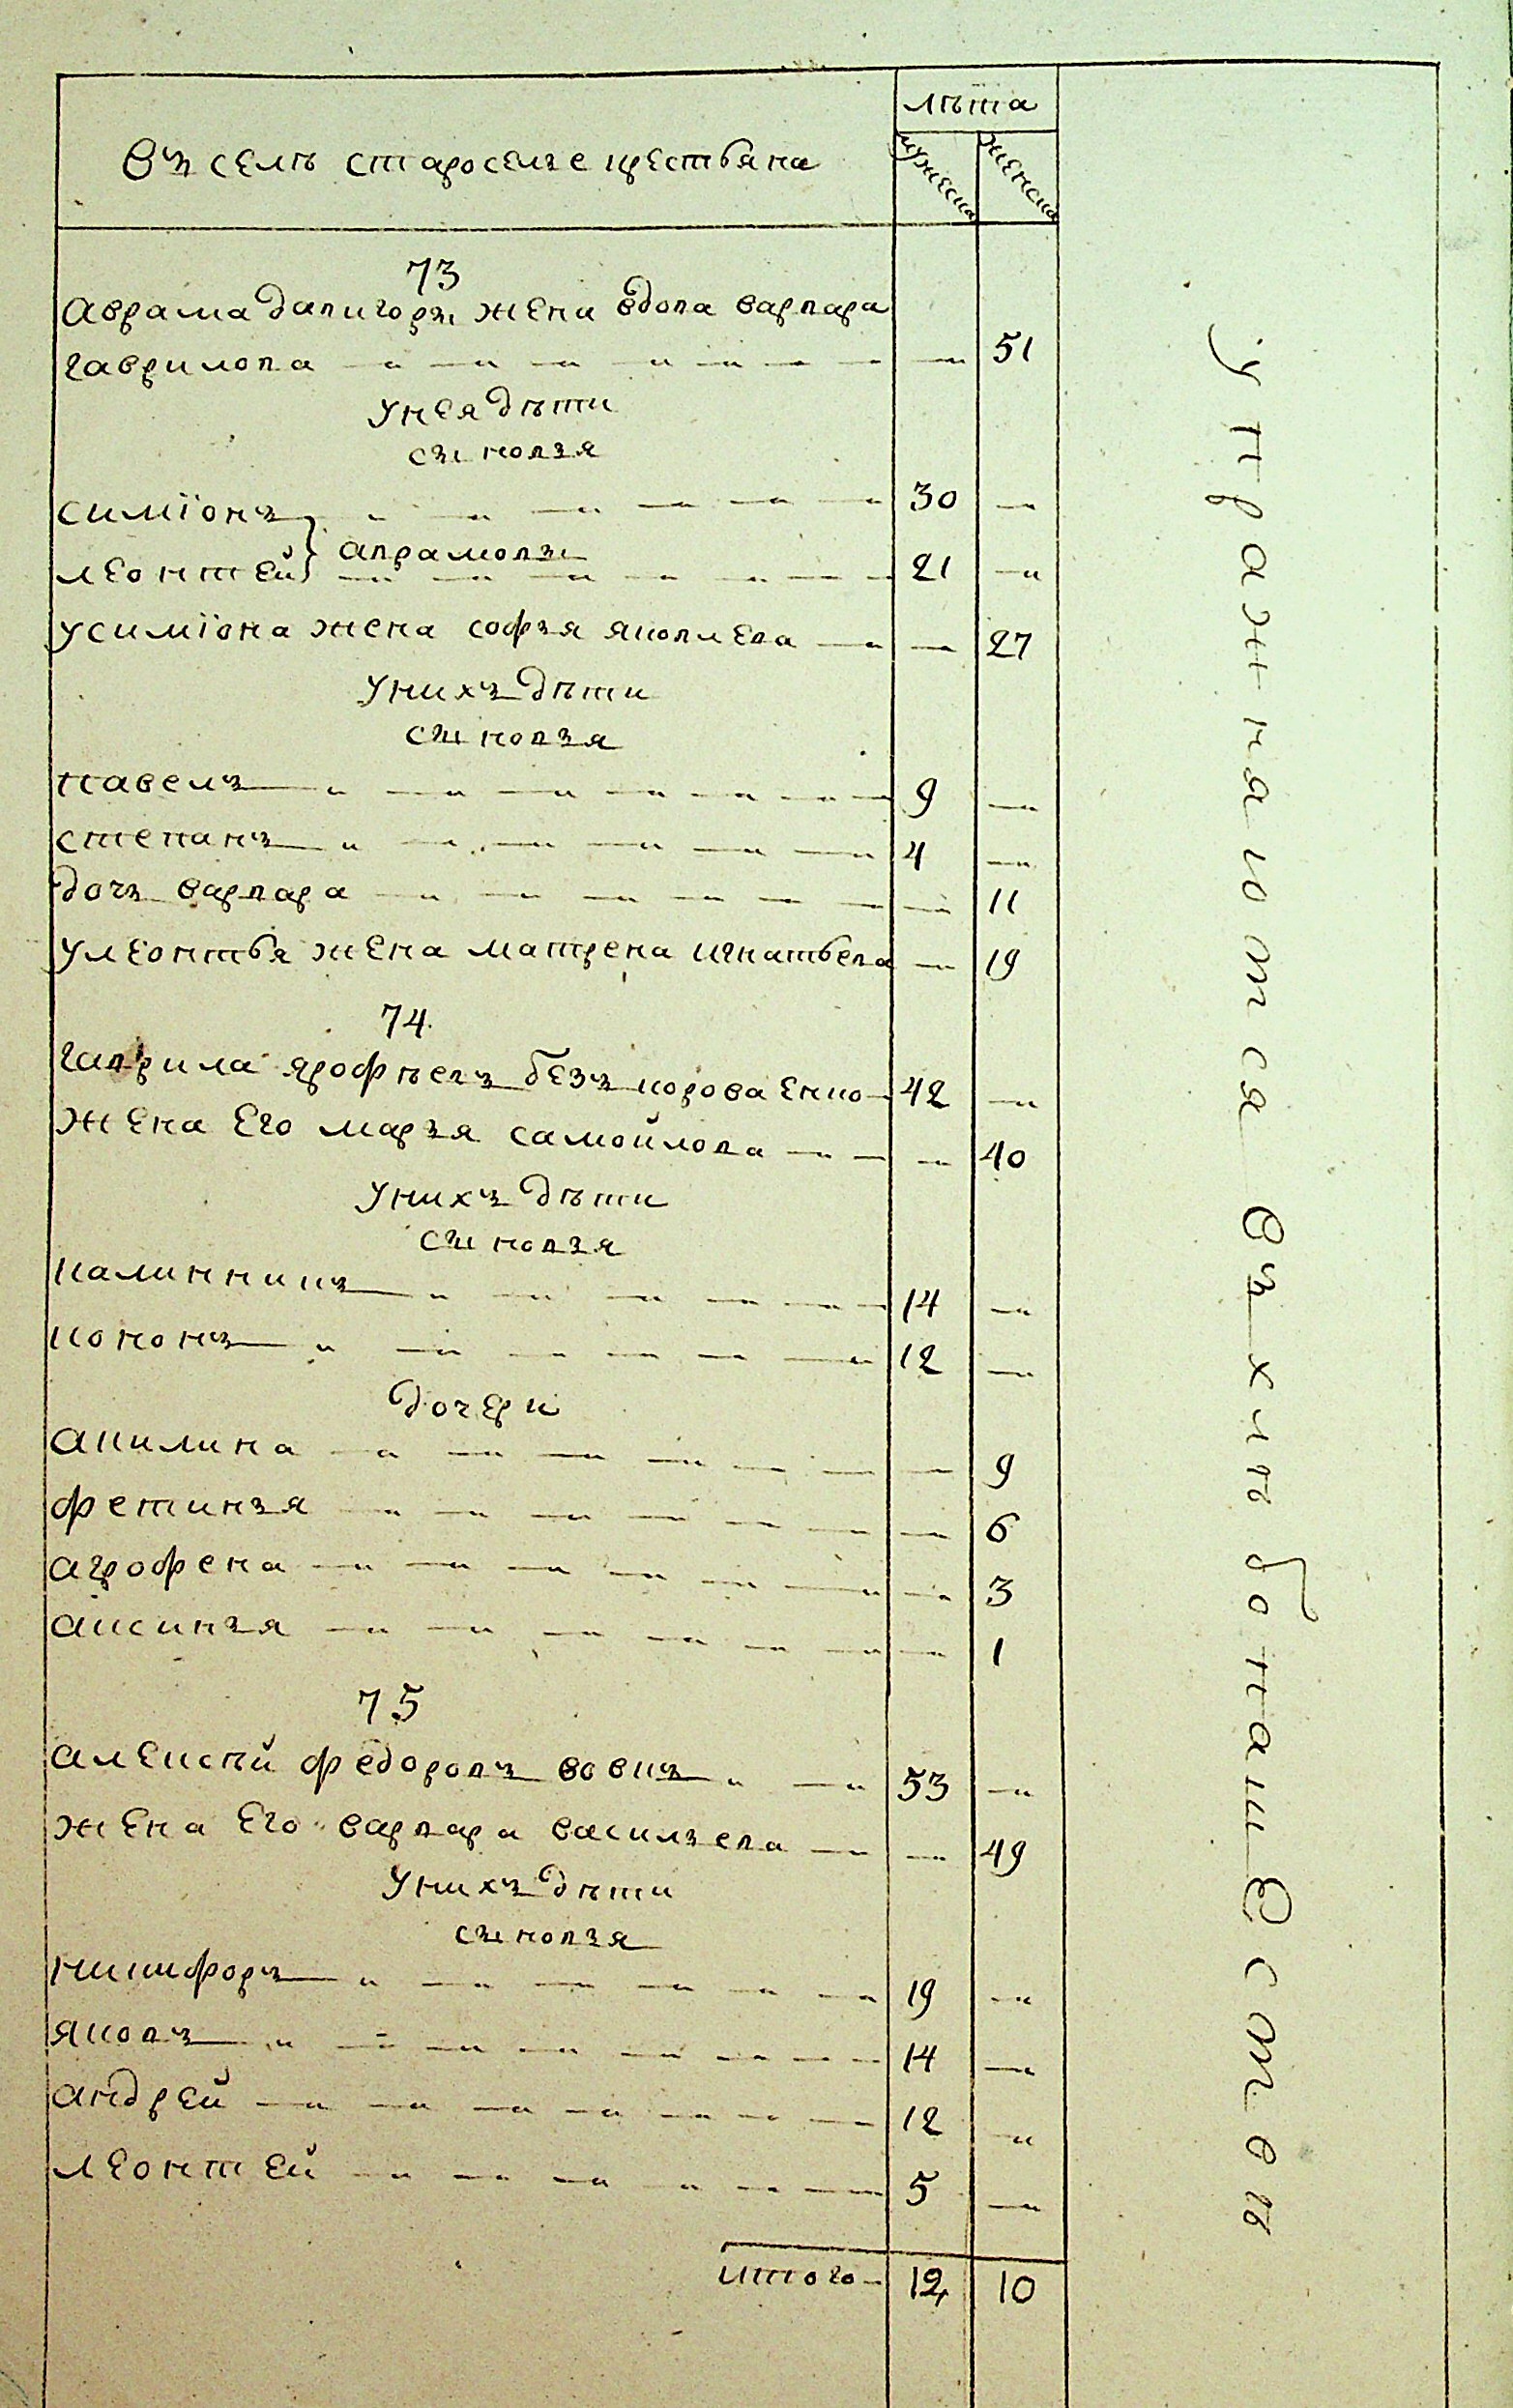 лѣта
въ селѣ староселье крестьяна
мужеска
женска
73
аврама даниторы жена вдова варвара
гаврилова 51
у нея дѣти
сыновья
симїонъ 30
леонтей } аврамовы 21
у симїона жена софья яковлева 27
у нихъ дѣти
сыновья
павелъ 9
степанъ 4
дочь варвара 11
у леонтья жена матрена игнатьева 19
74
гаврила ярофѣевъ безкороваенко 42
жена его марья самойлова 40
у нихъ дѣти
сыновья
калинникъ 14
кононъ 12
дочери
акилина 9
фетинья 6
агрофена 3
аксинья 1
75
алексѣй федоровъ вовкъ 53
жена его варвара васильева 49
у нихъ дѣти
сыновья
никифоръ 19
яковъ 14
андрей 12
леонтей 5
итого 12 10
упражнаются въ хлѣбопашествѣ